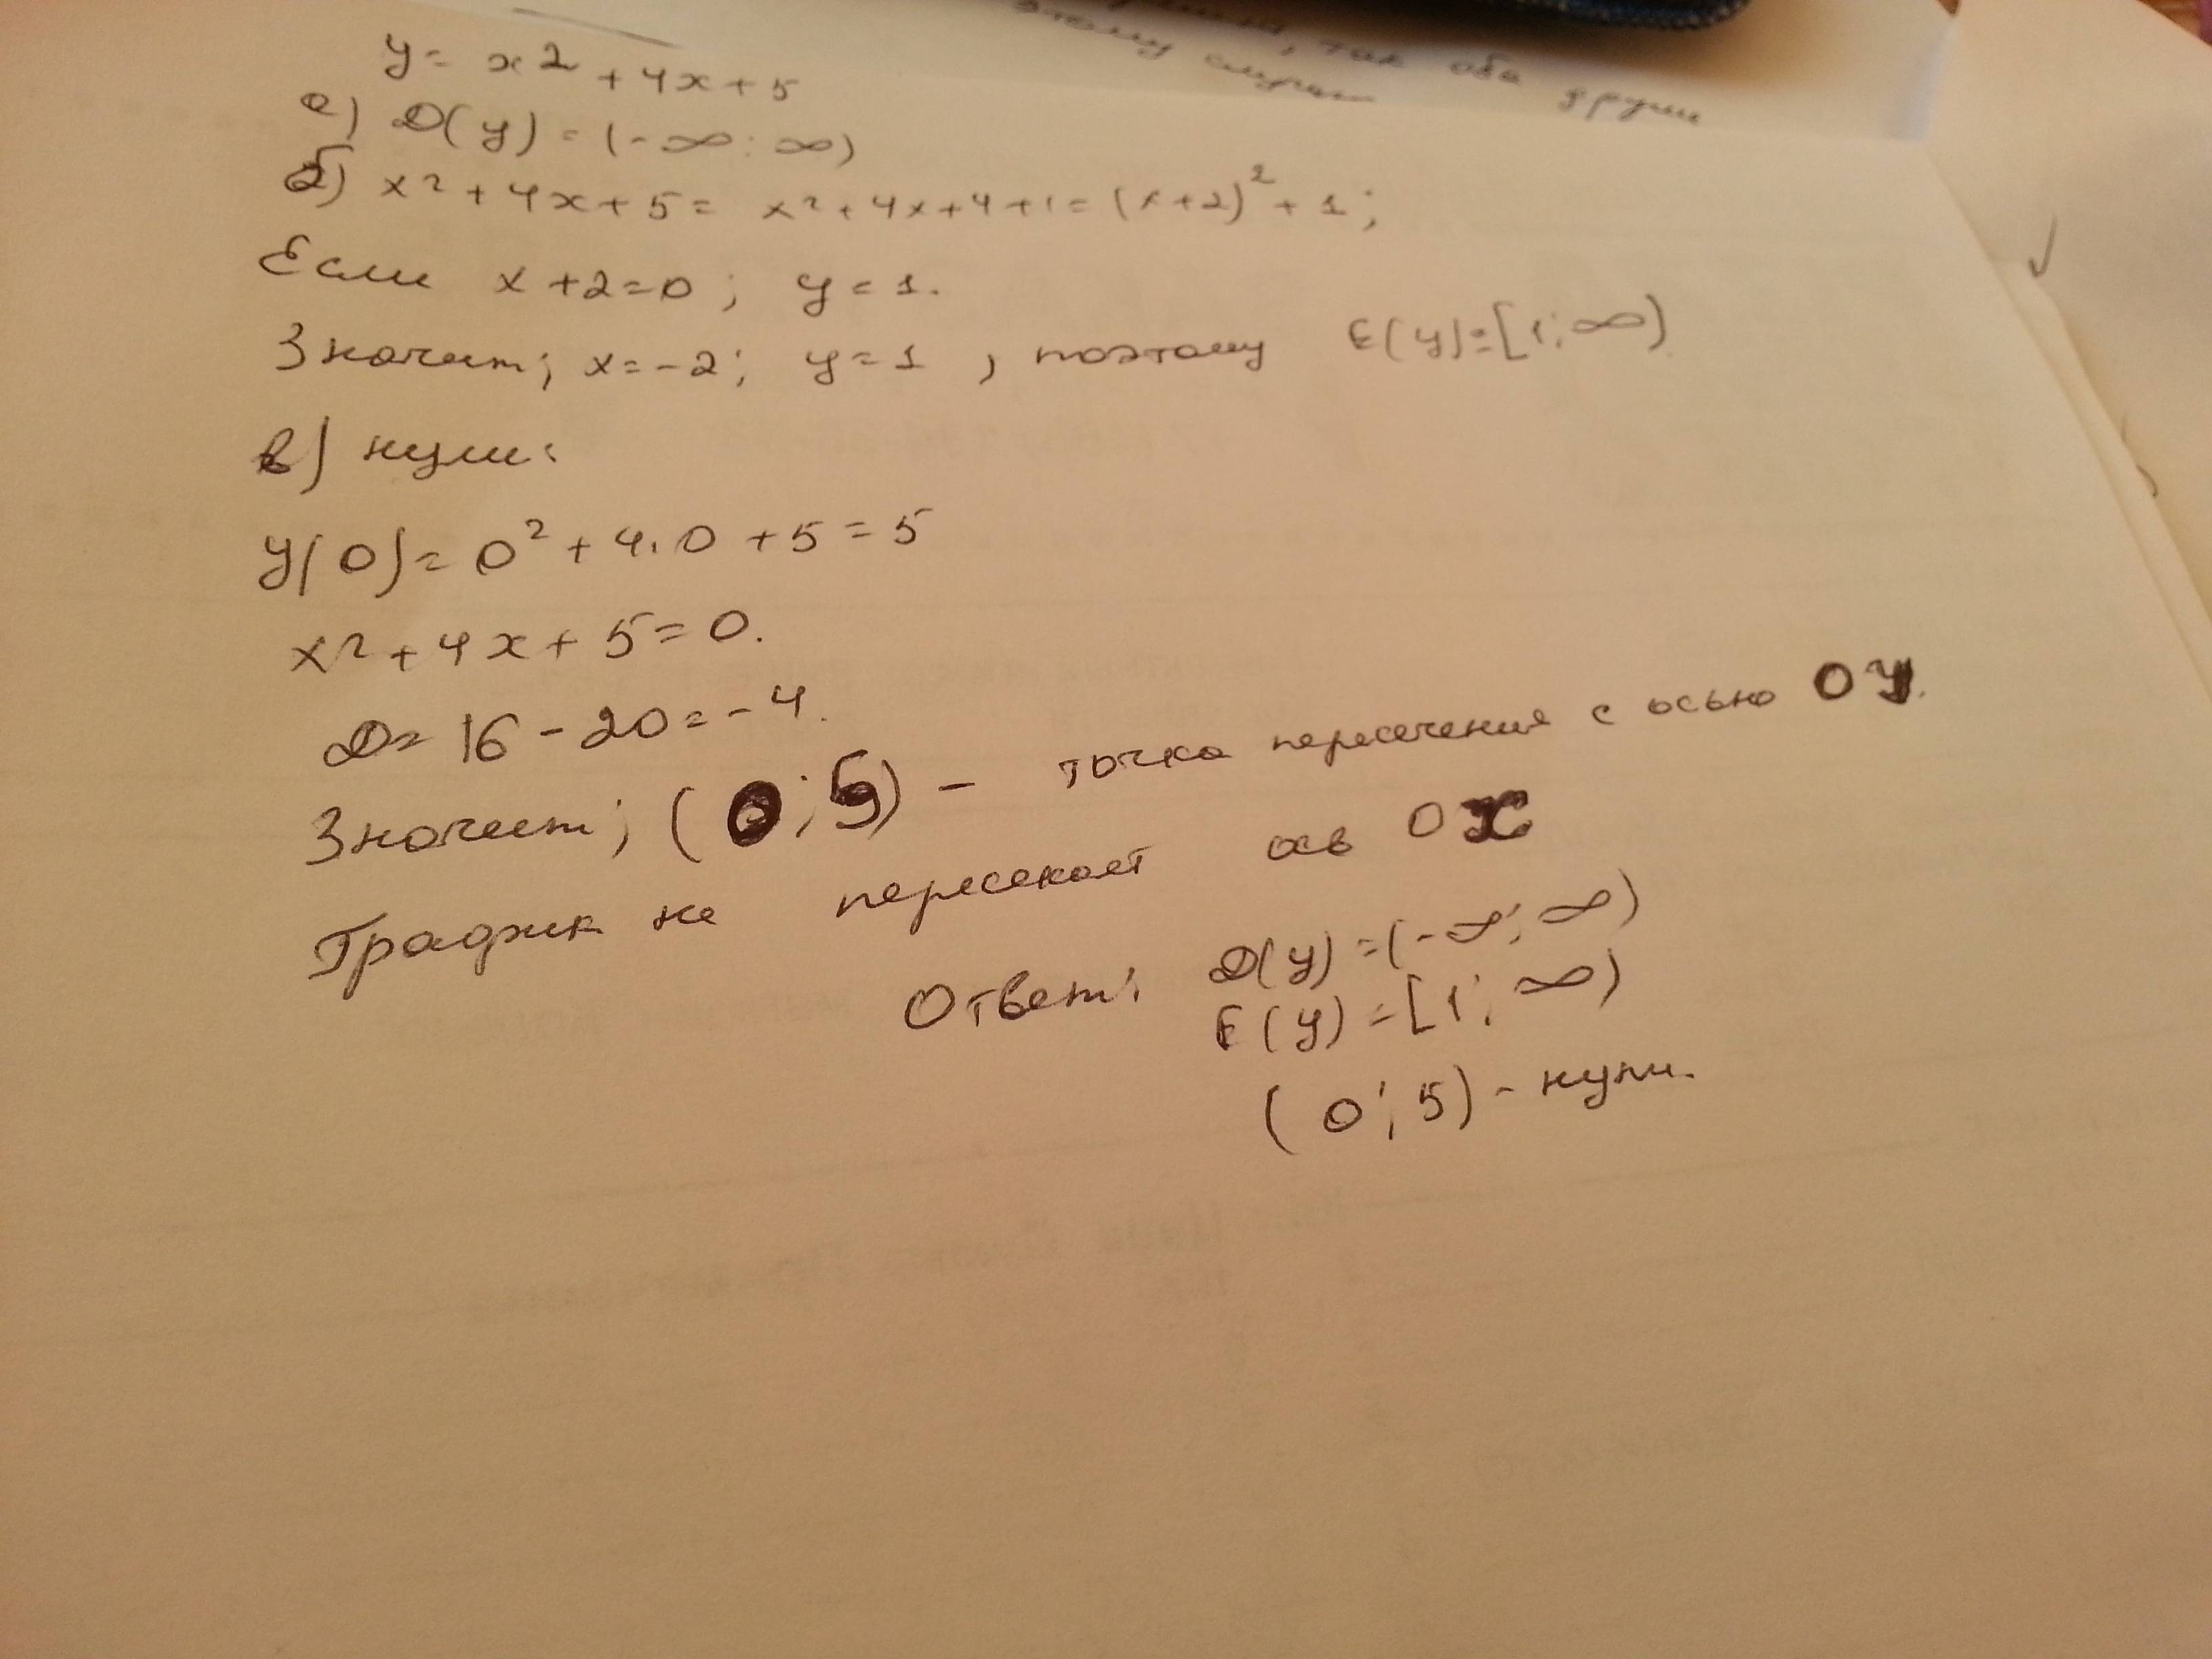 так оба други
этому
y = x2 + 4x + 5
а) D(y) = (-∞; ∞)
б) x² + 4x + 5 = x² + 4x + 4 + 1 = (x+2)² + 1;
Если x + 2 = 0; y = 1.
Значит; x = -2; y = 1, поэтому E(y) = [1; ∞)
в) нули:
y(0) = 0² + 4·0 + 5 = 5
x² + 4x + 5 = 0.
D = 16 - 20 = -4.
Значит; (0; 5) - точка пересечения с осью OY.
График не пересекает ось OX
Ответ: D(y) = (-∞; ∞)
E(y) = [1; ∞)
(0; 5) - нули.